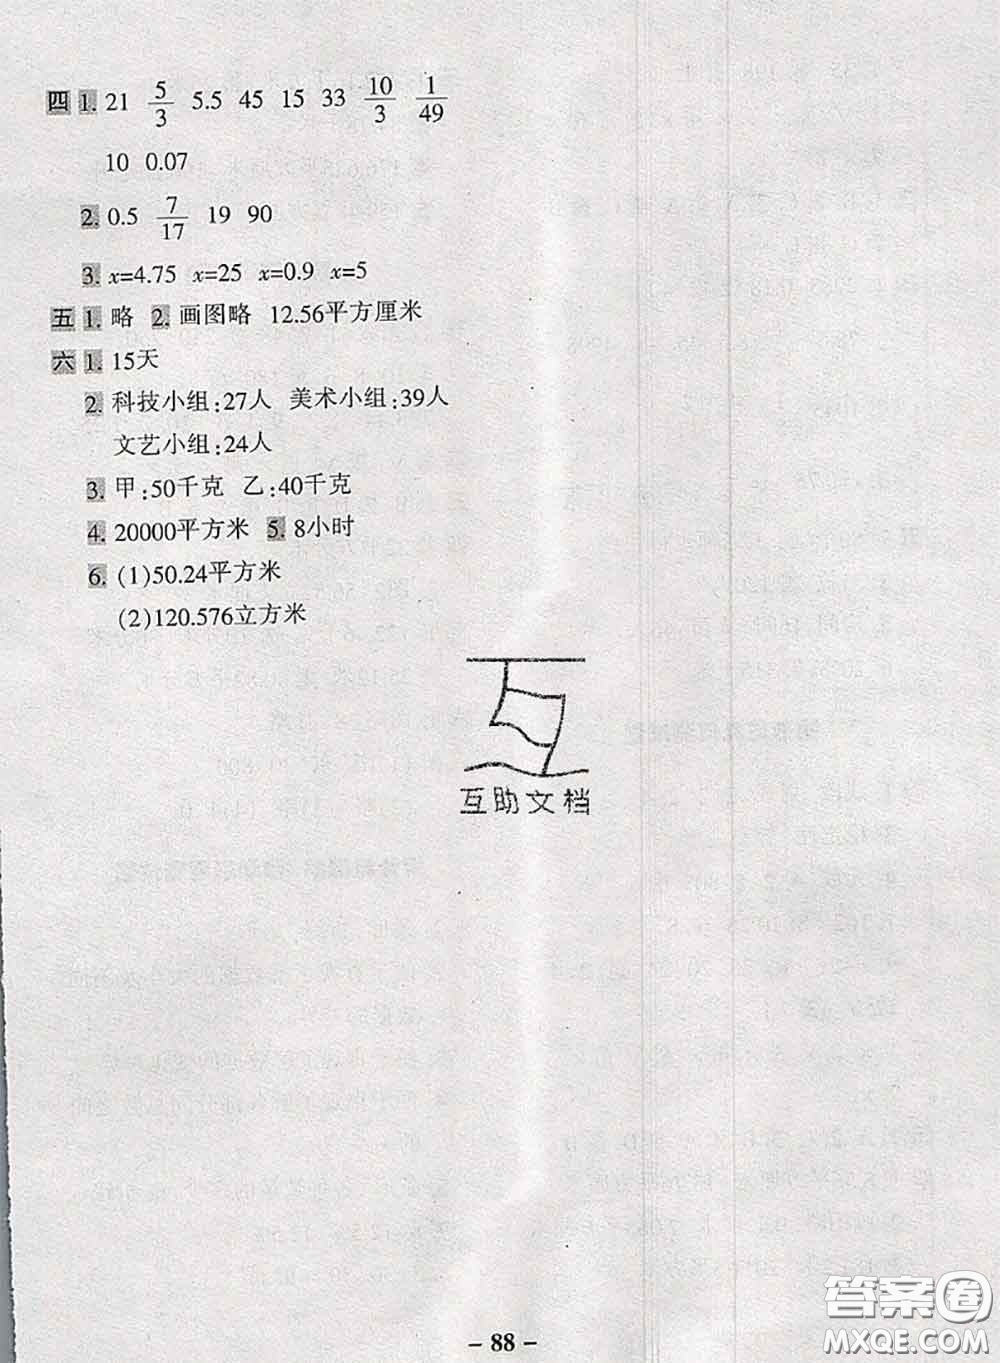 四 1. 21 5/3 5.5 45 15 33 10/3 1/49
10 0.07
2. 0.5 7/17 19 90
3. x=4.75 x=25 x=0.9 x=5
五 1. 略 2. 画图略 12.56平方厘米
六 1. 15天
2. 科技小组:27人 美术小组:39人
文艺小组:24人
3. 甲:50千克 乙:40千克
4. 20000平方米 5. 8小时
6. (1)50.24平方米
(2)120.576立方米
互
互助文档
- 88 -
答案圈
MXQE.COM